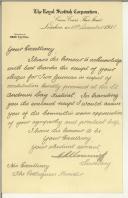 The Royal Scottish Corporation,
Crane Court, Fleet Street,
London
Your Excellency
I have the honour to acknowledge
with best thanks the receipt of your
cheque for Two Guineas in respect of
invitation kindly promised at the St.
Andrew's Day Festival. In handing
you the enclosed receipt I would assure
you of the Committee's warm appreciation
of your sympathy and practical help.
I have the honour to be
Your Excellency
your obedient servant
Secretary
His Excellency
The Portuguese Minister